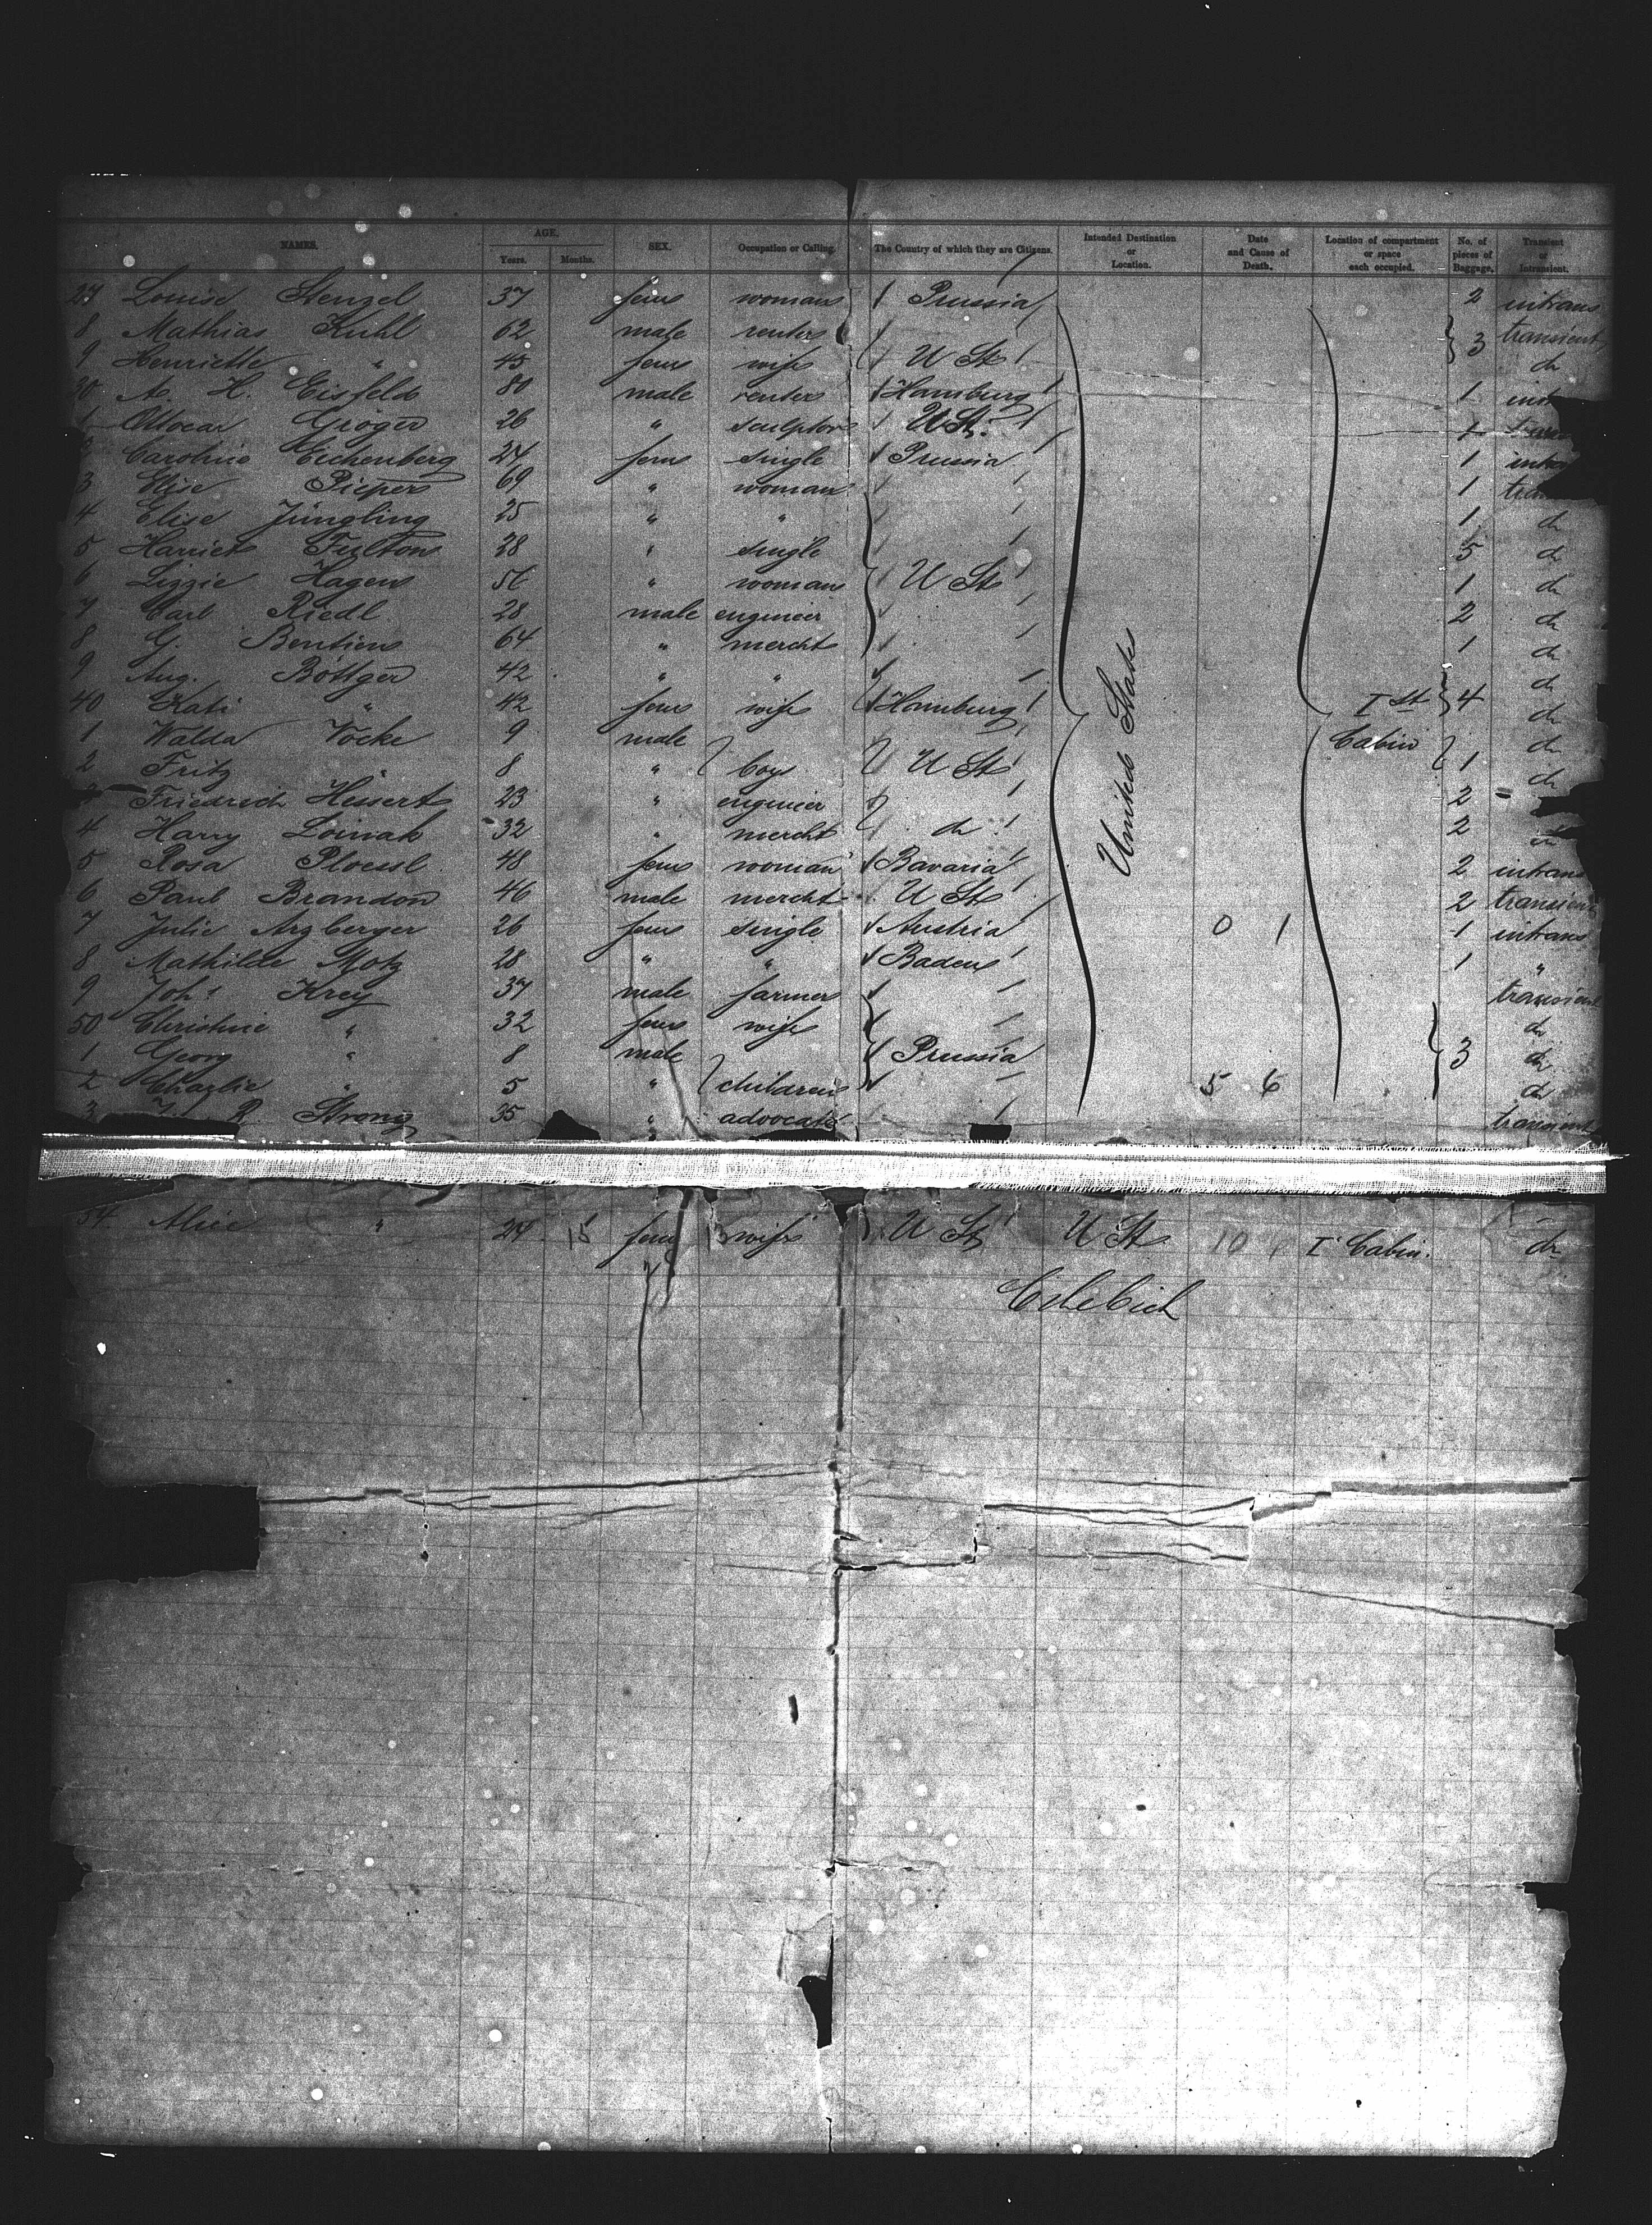 NAMES. AGE. Years. Months. SEX. Occupation or Calling. The Country of which they are Citizens. Intended Destination or Location. Date and Cause of Death. Location of compartment or space each occupied. No. of pieces of Baggage. Transient or Intransient.
27 Louise Stenzel 37 fem woman Prussia 2 intrans
8 Mathias Kuhl 62 male renter 3 transient
9 Henriette " 45 fem wife U St do
30 A. H. Eisfeld 80 male renter Hamburg 1
1 Ottocar Gröger 26 " sculptor U St. 1
Caroline Eichenberg 24 fem single Prussia 1
3 Elise Pieper 69 " woman 1
4 Elise Jüngling 25 " " 1 do
5 Harriet Fulton 28 " single 5 do
6 Lizzie Hagen 56 " woman U St 1 do
7 Carl Riedl 28 male engineer 2 do
8 G. Bentien 64 " mercht 1 do
9 Aug. Böttger 42 " " do
40 Kati " 42 fem wife Hamburg United States I St 4 do
1 Walda Vocke 9 male Cabin do
2 Fritz " 8 " boys U St 1 do
Friedrich Heisert 23 " engineer 2
4 Harry 32 " mercht do 2
5 Rosa 48 fem woman Bavaria 2 intrans
6 Paul Brandon 46 male mercht U St 2 transient
7 Julie Arzberger 26 fem single Austria 0 1 1 intrans
8 Mathilde Motz 28 " " Baden 1 "
9 Joh. Krey 37 male farmer transient
50 Christine " 32 fem wife do
1 Georg " 8 male Prussia 3 do
2 Charlie " 5 " children 5 6 do
3 R. Strong 35 " advocate transient
54 Alice " 24 15 fem wife U St U St. 10 I Cabin. do